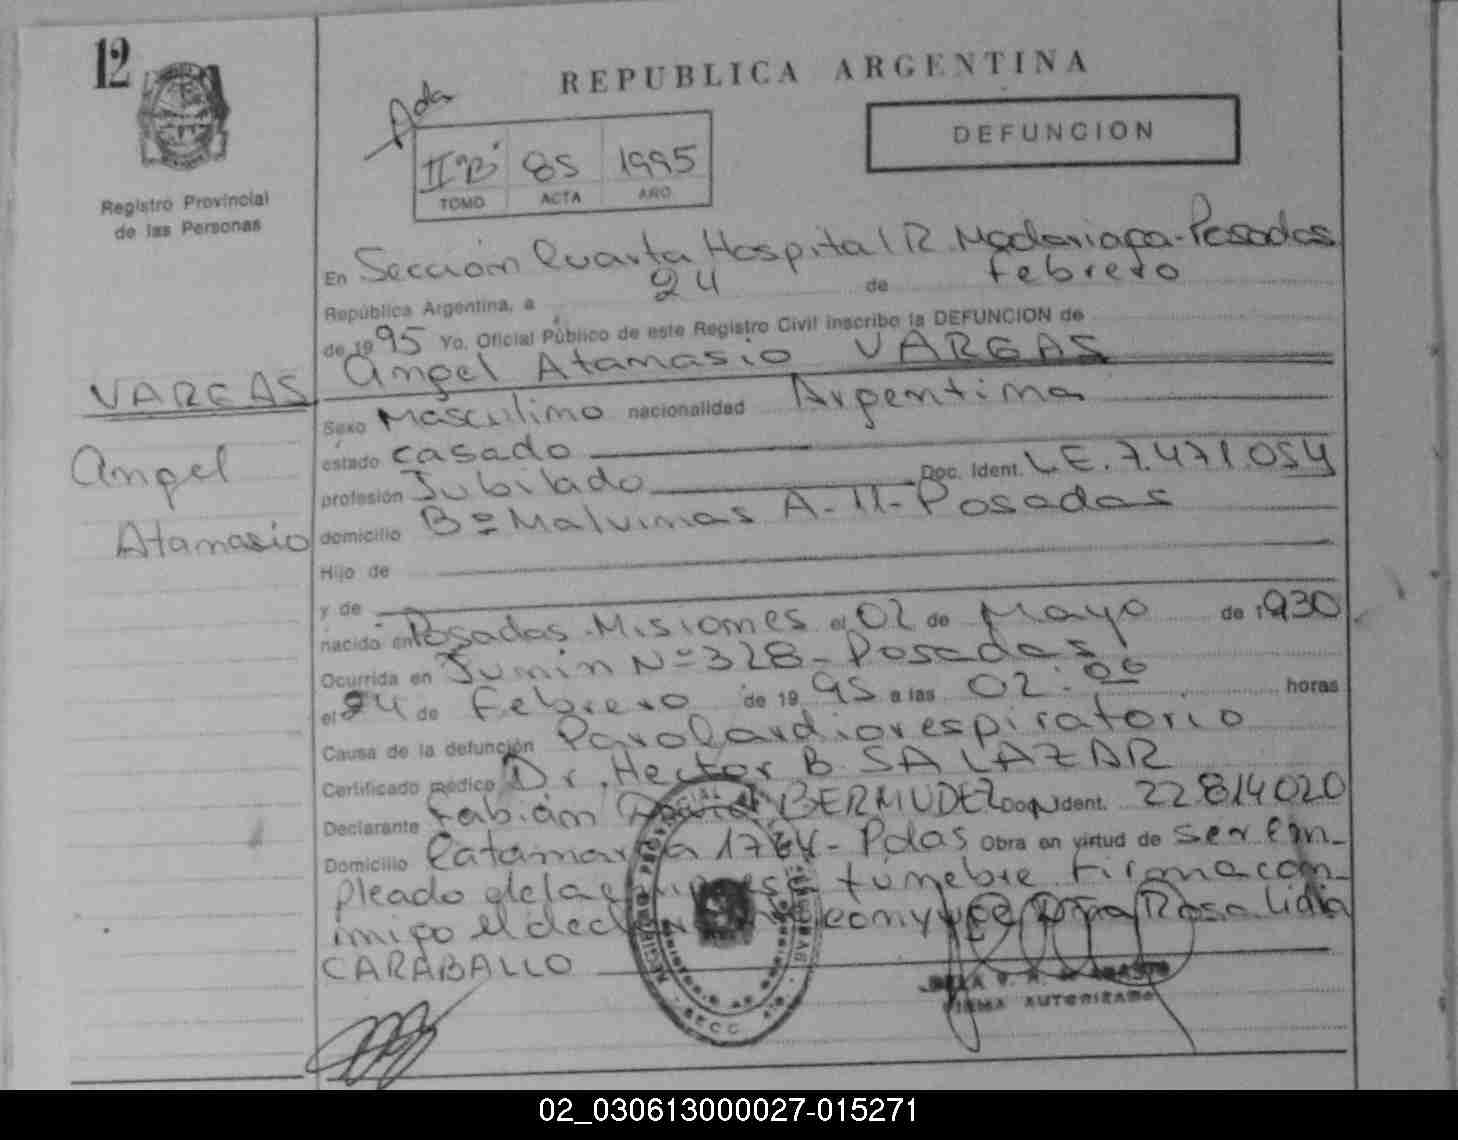 12
REPUBLICA ARGENTINA
Ada
DEFUNCION
II "B" 85 1995
TOMO ACTA AÑO
Registro Provincial
de las Personas
En Sección Cuarta Hospital R. Madariaga - Posadas
República Argentina, a 24 de febrero
de 1995 Yo, Oficial Público de este Registro Civil inscribo la DEFUNCION de
Angel Atamasio VARGAS
VARGAS
Angel
Atamasio
Sexo Masculino nacionalidad Argentina
estado casado
profesión Jubilado Doc. Ident. L.E. 7.471.054
domicilio Bº Malvinas A-11- Posadas
Hijo de
y de
nacido en Posadas. Misiones el 02 de Mayo de 1930
Ocurrida en Junin Nº 328 - Posadas
el 24 de febrero de 1995 a las 02:00 horas
Causa de la defunción Parocardiorespiratorio
Certificado médico Dr. Hector B. SALAZAR
Declarante Fabián BERMUDEZ Doc. Ident. 22.814020
Domicilio Catamarca 1764 - Pdas Obra en virtud de ser em-
pleado de la empresa fúnebre. Firma con-
migo el Rosa Lidia
CARABALLO
FIRMA AUTORIZADA
02_030613000027-015271